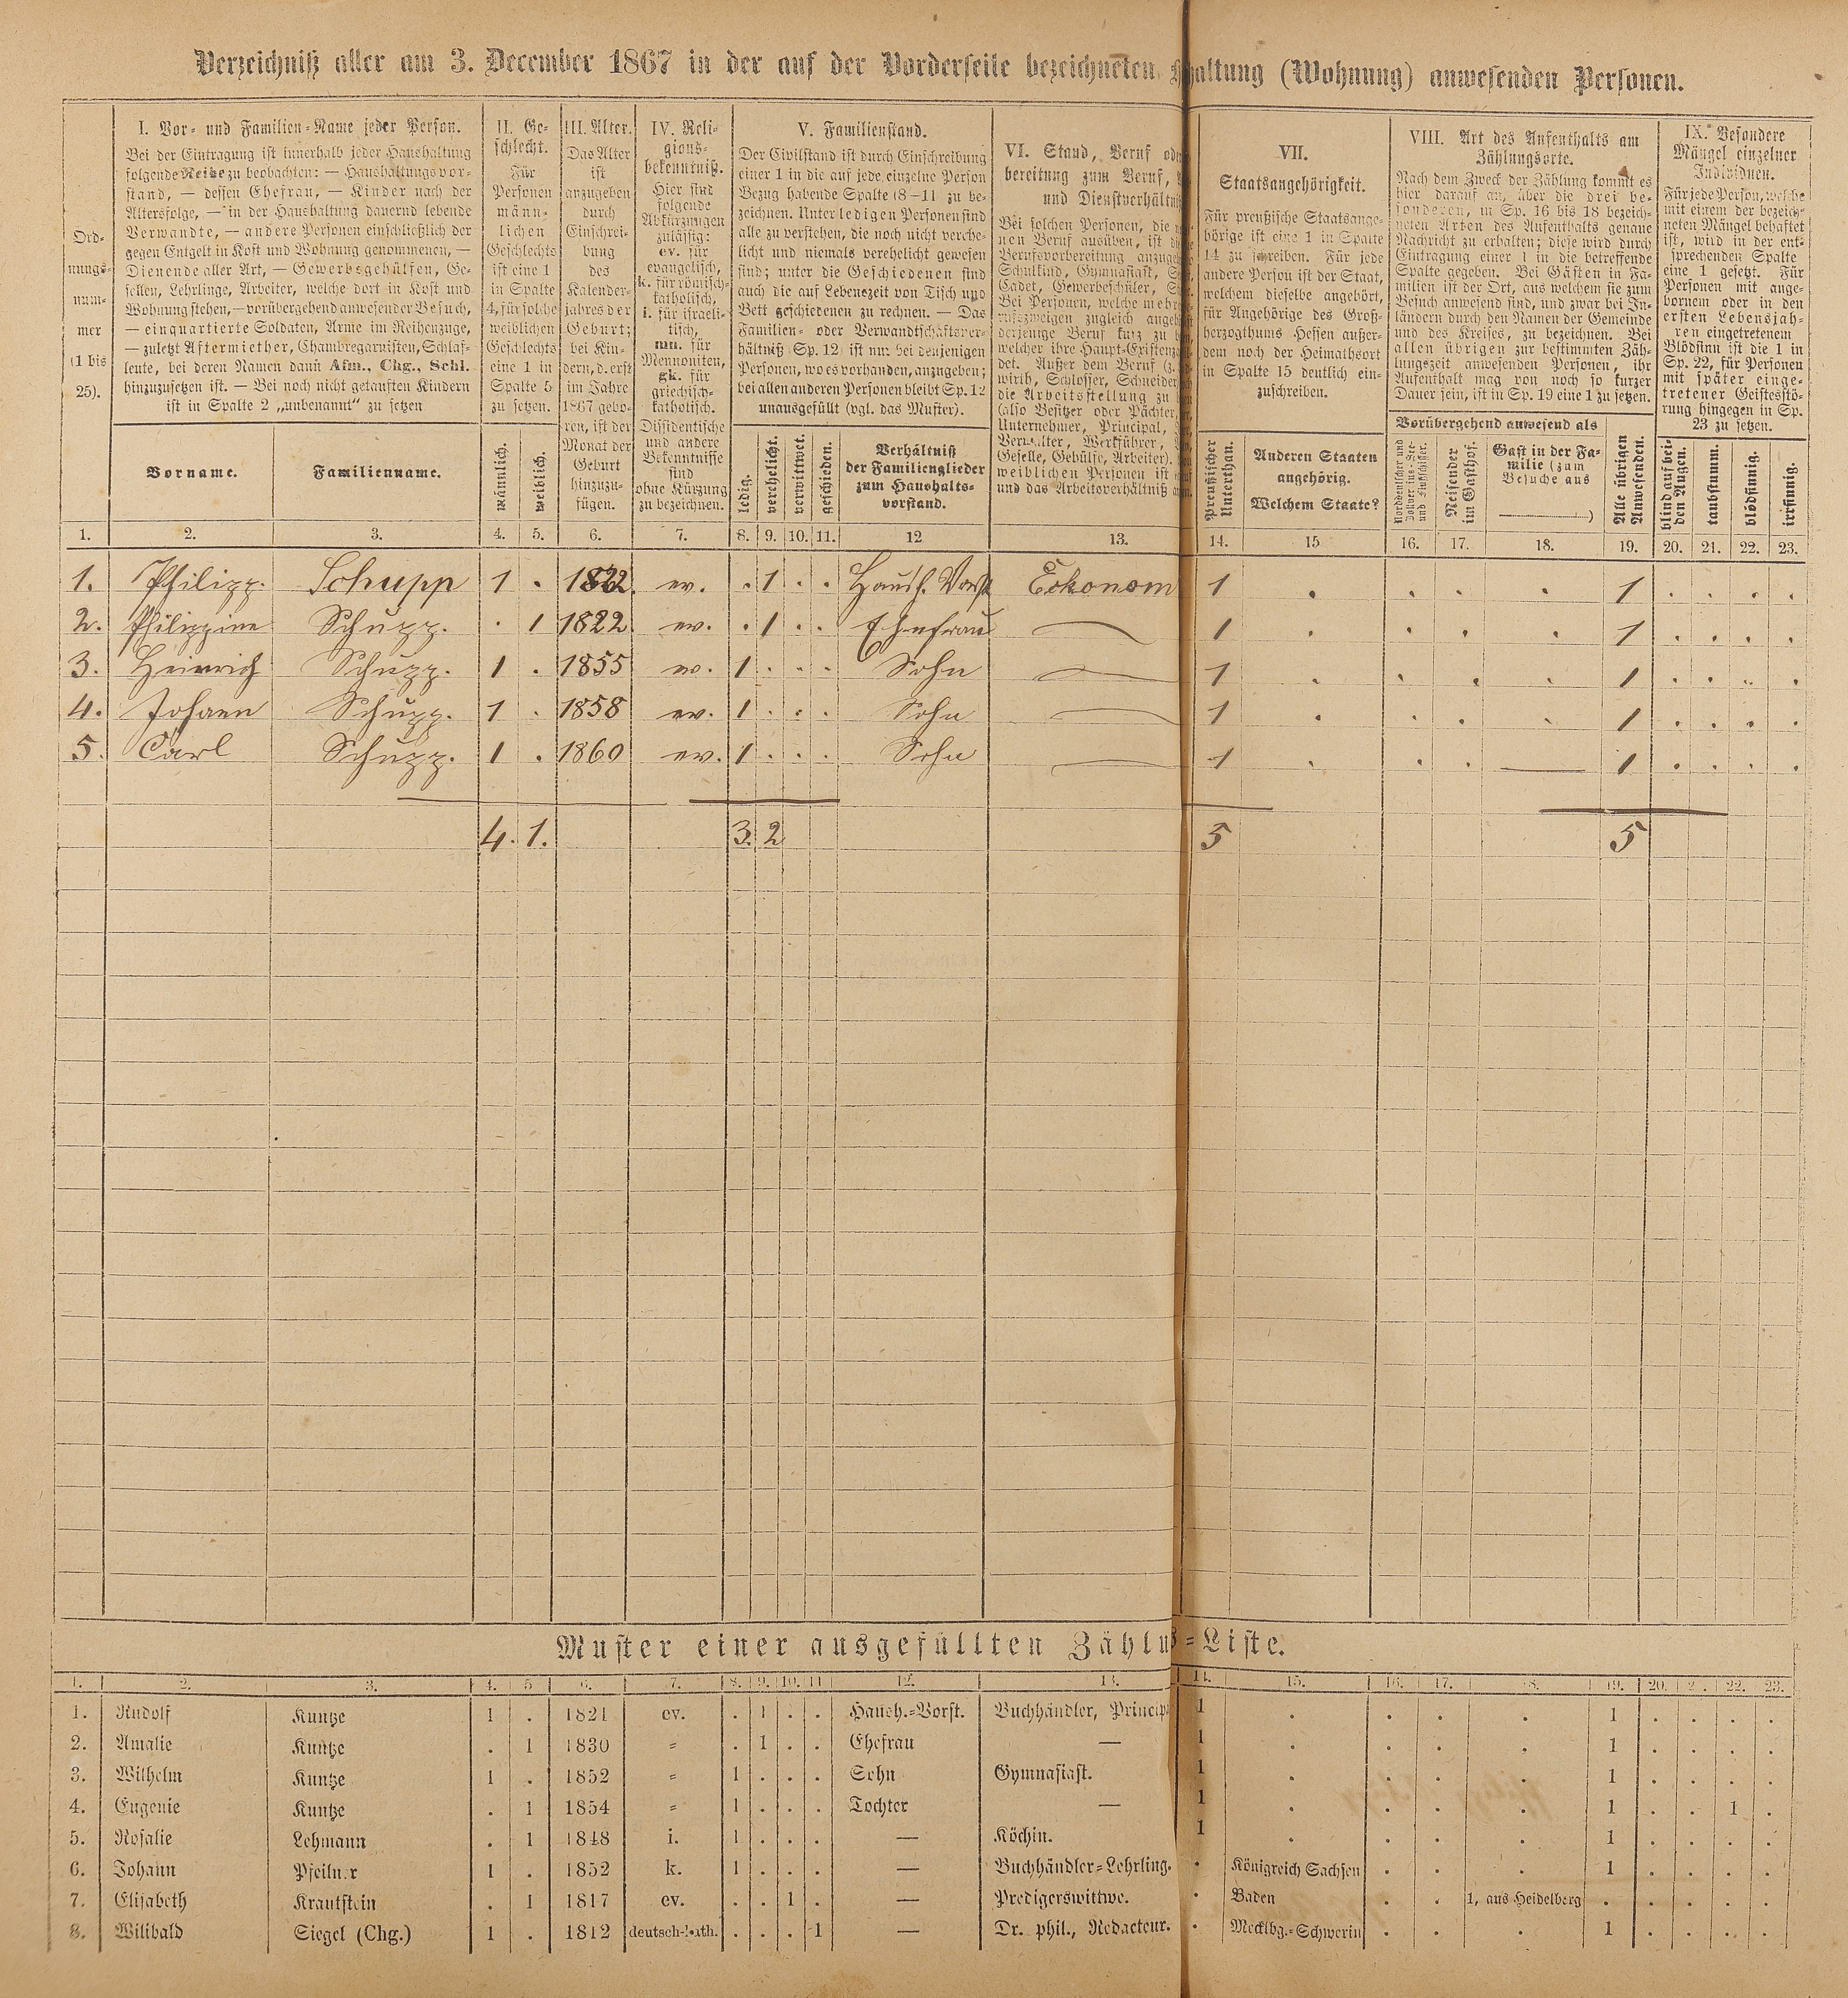 Verzeichniß aller am 3. December 1867 in der auf der Vorderseite bezeichneten haltung (Wohnung) anwesenden Personen.
Ord-
nungs-
num-
mer
(1 bis
25).
I. Vor- und Familien-Name jeder Person.
Bei der Eintragung ist innerhalb jeder Haushaltung
folgende Reihe zu beobachten: — Haushaltungsvor-
stand, — dessen Ehefrau, — Kinder nach der
Altersfolge, — in der Haushaltung dauernd lebende
Verwandte, — andere Personen einschließlich der
gegen Entgelt in Kost und Wohnung genommenen, —
Dienende aller Art, — Gewerbsgehülfen, Ge-
sellen, Lehrlinge, Arbeiter, welche dort in Kost und
Wohnung stehen, — vorübergehend anwesender Besuch,
— einquartierte Soldaten, Arme im Reihenzuge,
— zuletzt Aftermiether, Chambregarnisten, Schlaf-
leute, bei deren Namen dann Afm., Chg., Schl.
hinzuzusetzen ist. — Bei noch nicht getauften Kindern
ist in Spalte 2 „unbenannt“ zu setzen
Vorname.
Familienname.
II. Ge-
schlecht.
Für
Personen
männ-
lichen
Geschlechts
ist eine 1
in Spalte
4, für solche
weiblichen
Geschlechts
eine 1 in
Spalte 5
zu setzen.
männlich.
weiblich.
III. Alter.
Das Alter
ist
anzugeben
durch
Einschrei-
bung
des
Kalender-
jahres der
Geburt;
bei Kin-
dern, d. erst
im Jahre
1867 gebo-
ren, ist der
Monat der
Geburt
hinzuzu-
fügen.
IV. Reli-
gions-
bekenntniß.
Hier sind
folgende
Abkürzungen
zulässig:
ev. für
evangelisch,
k. für römisch-
katholisch,
i. für israeli-
tisch,
mn. für
Mennoniten,
gk. für
griechisch-
katholisch.
Dissidentische
und andere
Bekenntnisse
sind
ohne Kürzung
zu bezeichnen.
V. Familienstand.
Der Civilstand ist durch Einschreibung
einer 1 in die auf jede einzelne Person
Bezug habende Spalte (8—11 zu be-
zeichnen. Unter ledigen Personen sind
alle zu verstehen, die noch nicht verehe-
licht und niemals verehelicht gewesen
sind; unter die Geschiedenen sind
auch die auf Lebenszeit von Tisch und
Bett geschiedenen zu rechnen. — Das
Familien- oder Verwandtschaftsver-
hältniß (Sp. 12) ist nur bei denjenigen
Personen, wo es vorhanden, anzugeben;
bei allen anderen Personen bleibt Sp. 12
unausgefüllt (vgl. das Muster).
ledig.
verehelicht.
verwittwet.
geschieden.
Verhältniß
der Familienglieder
zum Haushalts-
vorstand.
VI. Stand, Beruf od
bereitung zum Beruf,
und Dienstverhältni
Bei solchen Personen, die
nen Beruf ausüben, ist d
Berufsvorbereitung anzuge
Schulkind, Gymnasiast, S
Cadet, Gewerbeschüler,
Bei Personen, welche mehr
rufszweigen zugleich ange
derjenige Beruf kurz zu
welcher ihre Haupt-Existenz
det. Außer dem Beruf (z.
wirth, Schlosser, Schneider
die Arbeitsstellung zu
(also Besitzer oder Pächter,
Unternehmer, Principal,
Verwalter, Werkführer,
Geselle, Gehülfe, Arbeiter).
weiblichen Personen ist
und das Arbeitsverhältniß
VII.
Staatsangehörigkeit.
Für preußische Staatsange-
hörige ist eine 1 in Spalte
14 zu schreiben. Für jede
andere Person ist der Staat,
welchem dieselbe angehört,
für Angehörige des Groß-
herzogthums Hessen außer-
dem noch der Heimathsort
in Spalte 15 deutlich ein-
zuschreiben.
Preußischer
Unterthan.
Anderen Staaten
angehörig.
Welchem Staate?
VIII. Art des Aufenthalts am
Zählungsorte.
Nach dem Zweck der Zählung kommt es
hier darauf an, über die drei be-
sonderen, in Sp. 16 bis 18 bezeich-
neten Arten des Aufenthalts genaue
Nachricht zu erhalten; diese wird durch
Eintragung einer 1 in die betreffende
Spalte gegeben. Bei Gästen in Fa-
milien ist der Ort, aus welchem sie zum
Besuch anwesend sind, und zwar bei In-
ländern durch den Namen der Gemeinde
und des Kreises, zu bezeichnen. Bei
allen übrigen zur bestimmten Zäh-
lungszeit anwesenden Personen, ihr
Aufenthalt mag von noch so kurzer
Dauer sein, ist in Sp. 19 eine 1 zu setzen.
Vorübergehend anwesend als
Norddeutscher und
Zollvereins-See-
und Flußschiffer.
Reisender
im Gasthof.
Gast in der Fa-
milie (zum
Besuche aus
)
Alle übrigen
Anwesenden.
IX. Besondere
Mängel einzelner
Individuen.
Für jede Person, welche
mit einem der bezeich-
neten Mängel behaftet
ist, wird in der ent-
sprechenden Spalte
eine 1 gesetzt. Für
Personen mit ange-
bornem oder in den
ersten Lebensjah-
ren eingetretenem
Blödsinn ist die 1 in
Sp. 22, für Personen
mit später einge-
tretener Geistesstö-
rung hingegen in Sp.
23 zu setzen.
blind auf bei-
den Augen.
taubstumm.
blödsinnig.
irrsinnig.
1. 2. 3. 4. 5. 6. 7. 8. 9. 10. 11. 12 13. 14. 15 16. 17. 18. 19. 20. 21. 22. 23.
1. Philipp. Schupp 1 . 1822. ev. . 1 . . Haush. Vorst Eckonom 1 . . . . 1 . . . .
2. Philippine Schupp. . 1 1822 ev. . 1 . . Ehefrau — 1 . . . . 1 . . . .
3. Heinrich Schupp. 1 . 1855 ev. 1 . . . Sohn — 1 . . . . 1 . . . .
4. Johann Schupp. 1 . 1858 ev. 1 . . . Sohn — 1 . . . . 1 . . . .
5. Carl Schupp. 1 . 1860 ev. 1 . . . Sohn — 1 . . . — 1 . . . .
4. 1. 3. 2 5 5
Muster einer ausgefüllten Zählu s-Liste.
1. 2. 3. 4. 5 6. 7. 8. 9. 10. 11 12. 13. 14. 15. 16. 17. 18. 19. 20. 2. 22. 23.
1. Rudolf Kuntze 1 . 1821 ev. . 1 . . Haush.-Vorst. Buchhändler, Princip 1 . . . . 1 . . . .
2. Amalie Kuntze . 1 1830 = . 1 . . Ehefrau — 1 . . . . 1 . . . .
3. Wilhelm Kuntze 1 . 1852 = 1 . . . Sohn Gymnasiast. 1 . . . . 1 . . . .
4. Eugenie Kuntze . 1 1854 = 1 . . . Tochter — 1 . . . . 1 . . 1 .
5. Rosalie Lehmann . 1 1848 i. 1 . . . — Köchin. 1 . . . . 1 . . . .
6. Johann Pfeilner 1 . 1852 k. 1 . . . — Buchhändler-Lehrling. . Königreich Sachsen . . . 1 . . . .
7. Elisabeth Krautstein . 1 1817 ev. . . 1 . — Predigerswittwe. . Baden . . 1, aus Heidelberg . . . . .
8. Wilibald Siegel (Chg.) 1 . 1812 deutsch-kath. . . . 1 — Dr. phil., Redacteur. . Mecklbg.-Schwerin . . . 1 . . . .